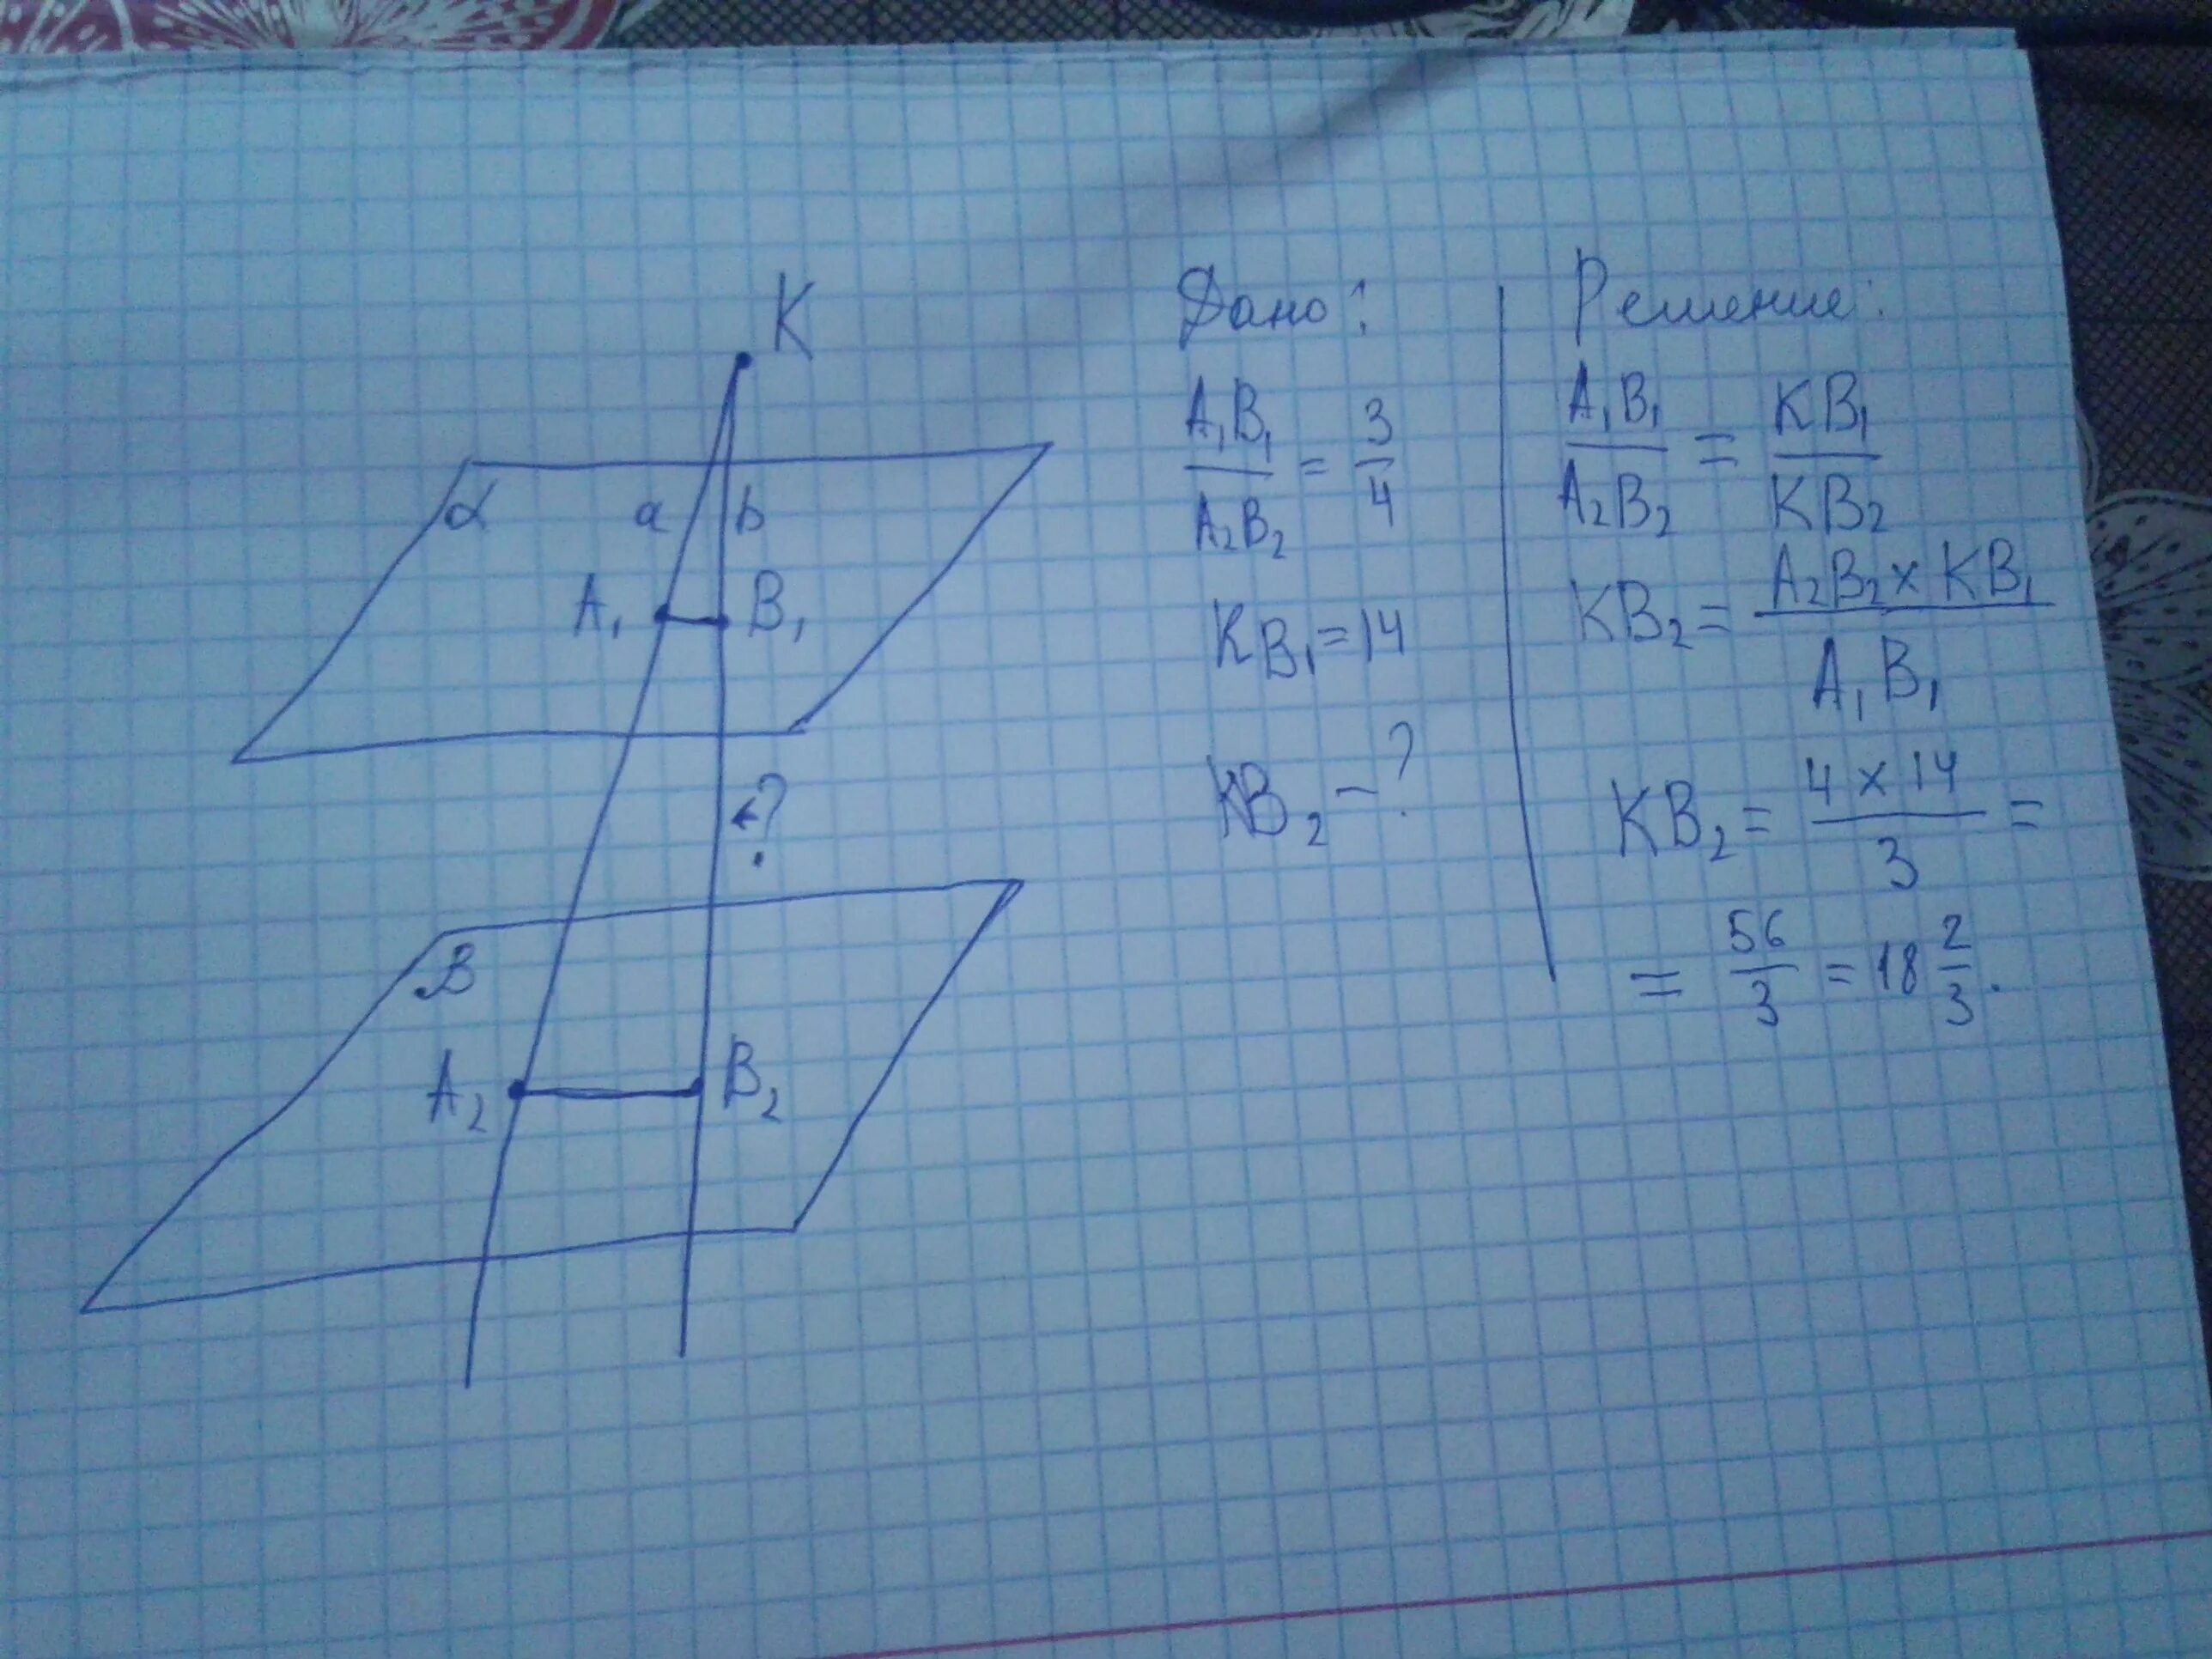 K
α a b
A₁ B₁
?
B
A₂ B₂
Дано:
A₁B₁ / A₂B₂ = 3/4
KB₁ = 14
KB₂ – ?
Решение:
A₁B₁ / A₂B₂ = KB₁ / KB₂
KB₂ = A₂B₂ × KB₁ / A₁B₁
KB₂ = 4 × 14 / 3 =
= 56/3 = 18 2/3.